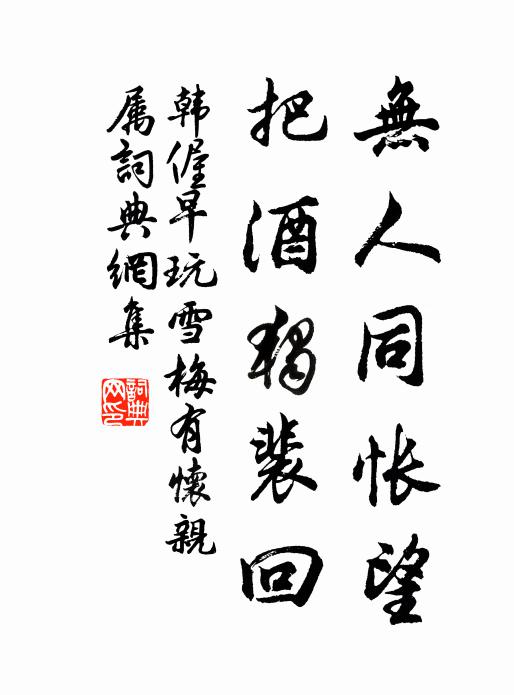 無人同悵望
把酒獨裴回
韩偓早玩雪梅有懷親
属詞典網集
詞典网印